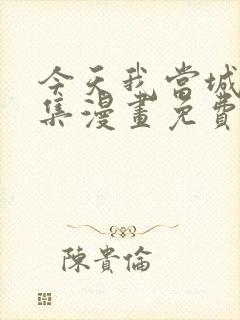 今天我當城
集漫畫免費
陳貴倫